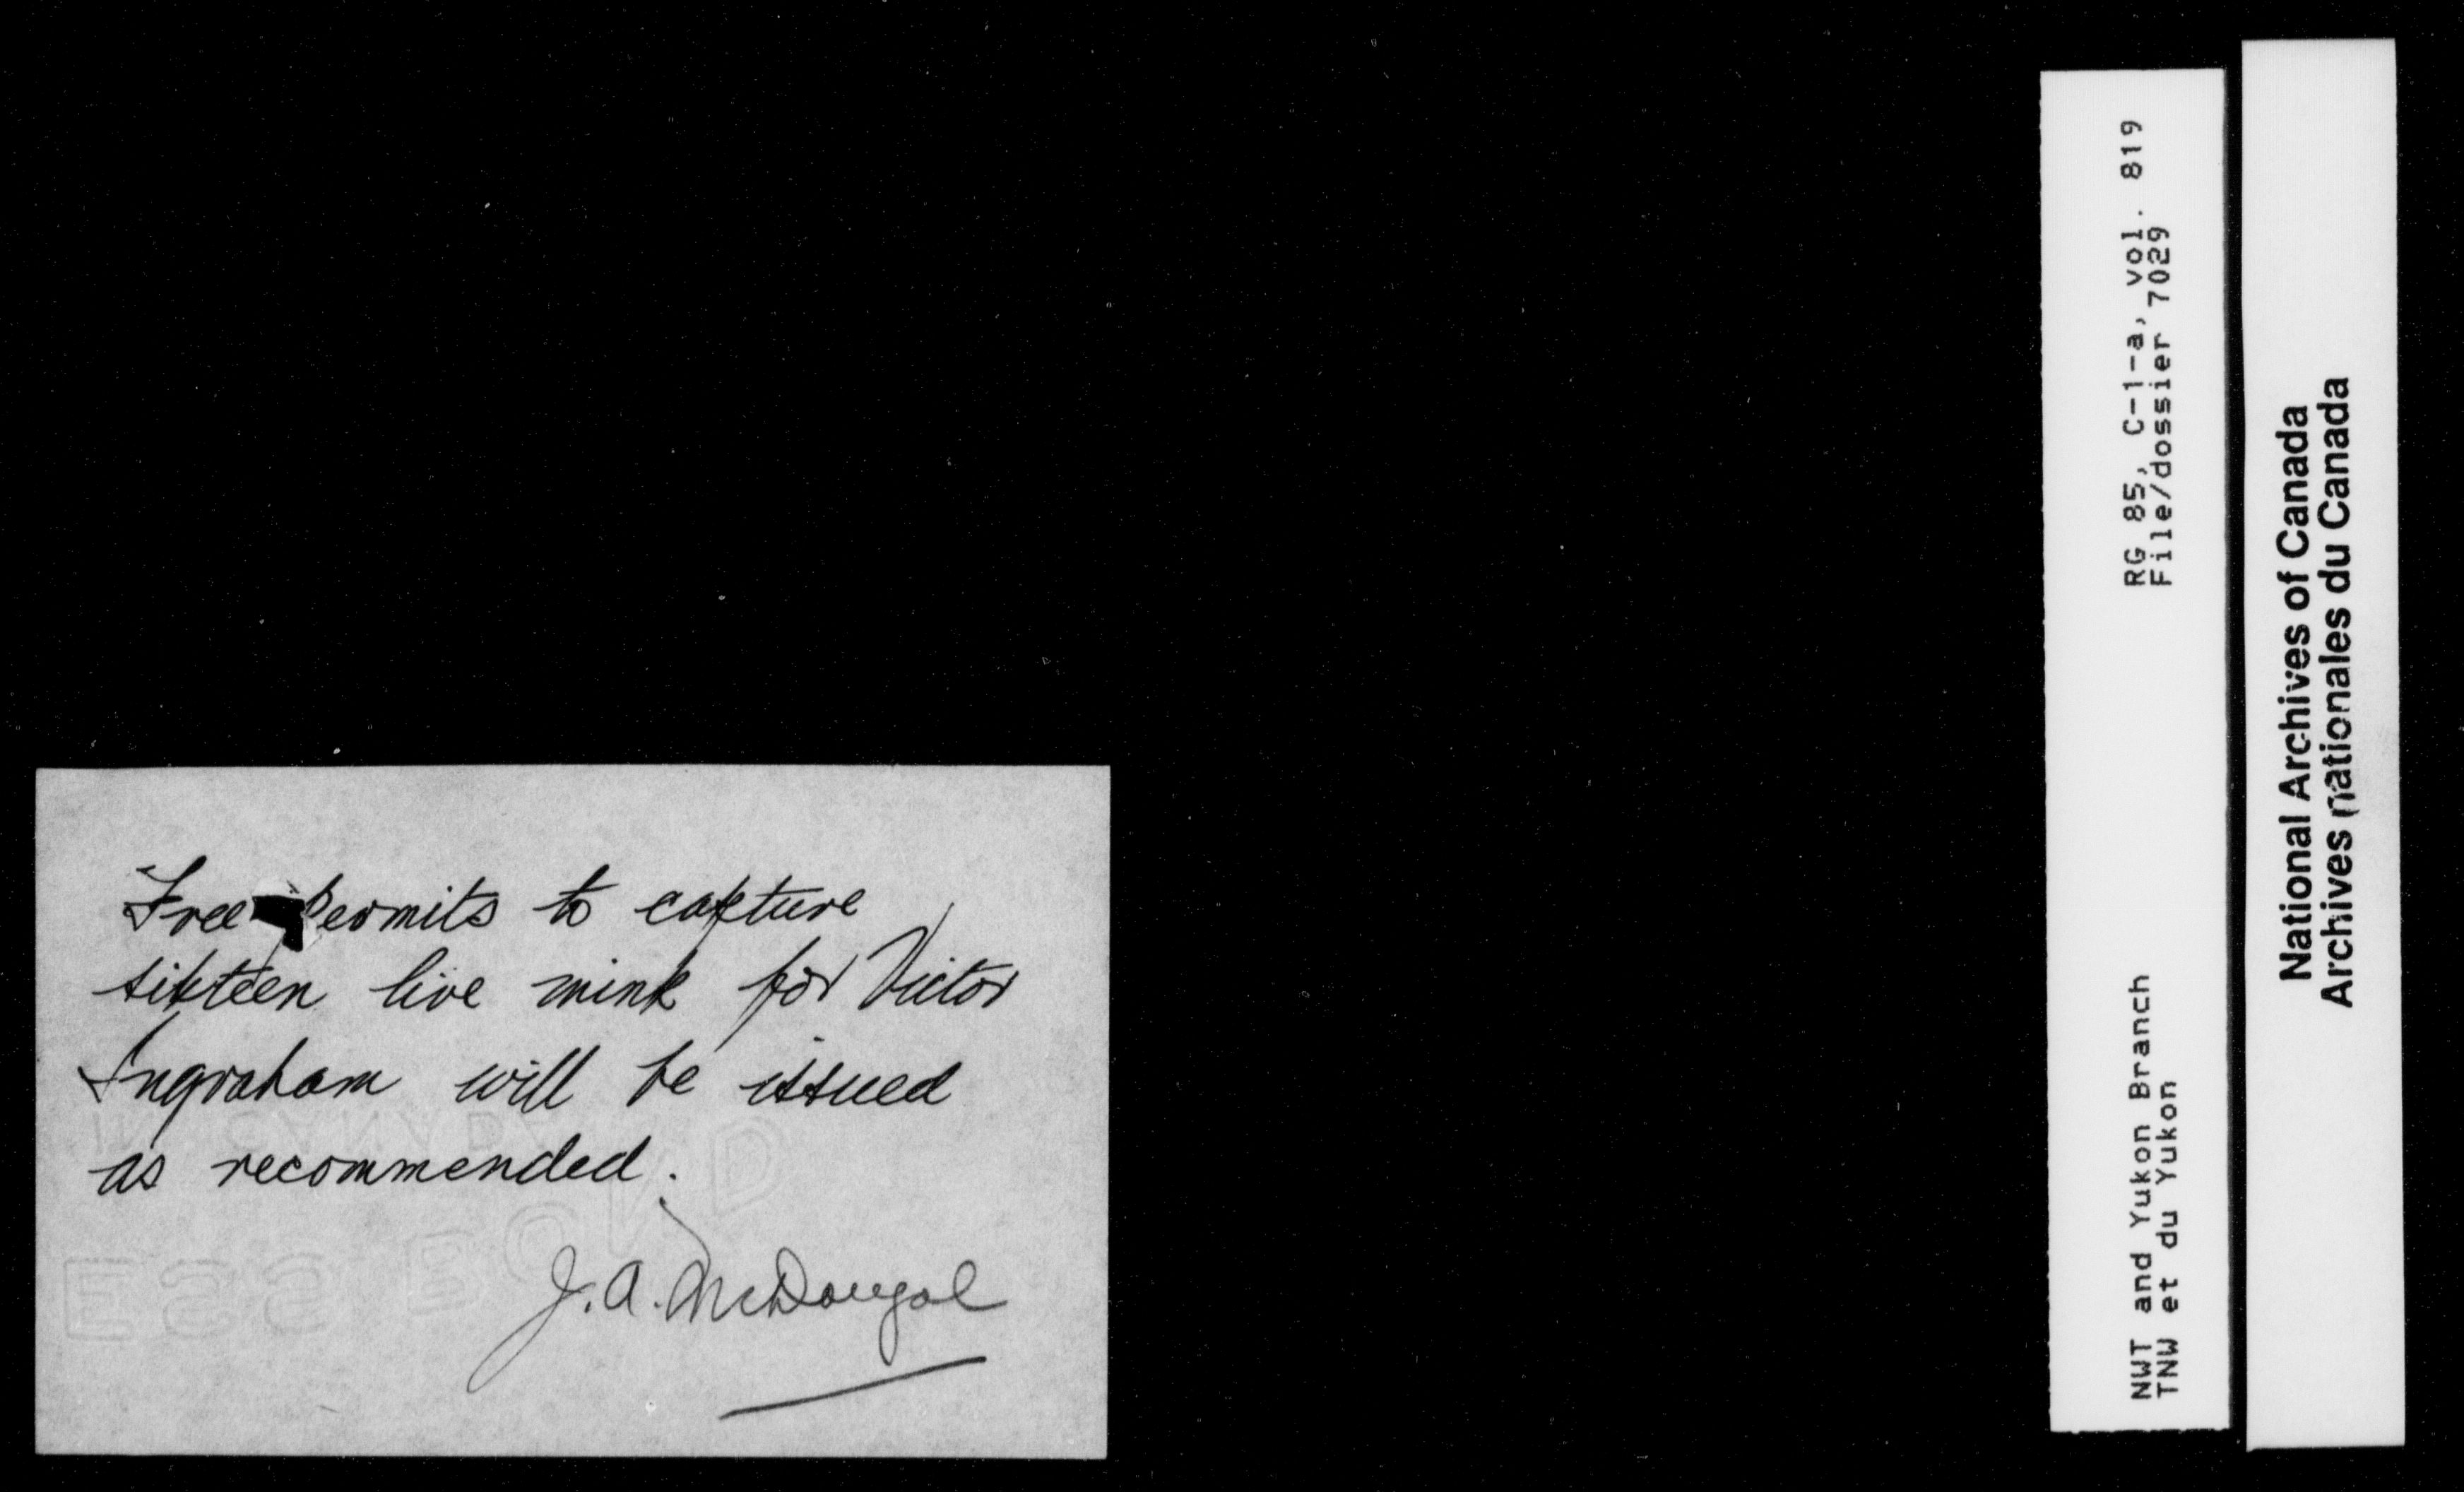 Free permits to capture
sixteen live mink for Victor
Ingraham will be issued
as recommended.
J. A. McDougal
RG 85, C-1-a, vol. 819
File/dossier 7029
NWT and Yukon Branch
TNW et du Yukon
National Archives of Canada
Archives nationales du Canada